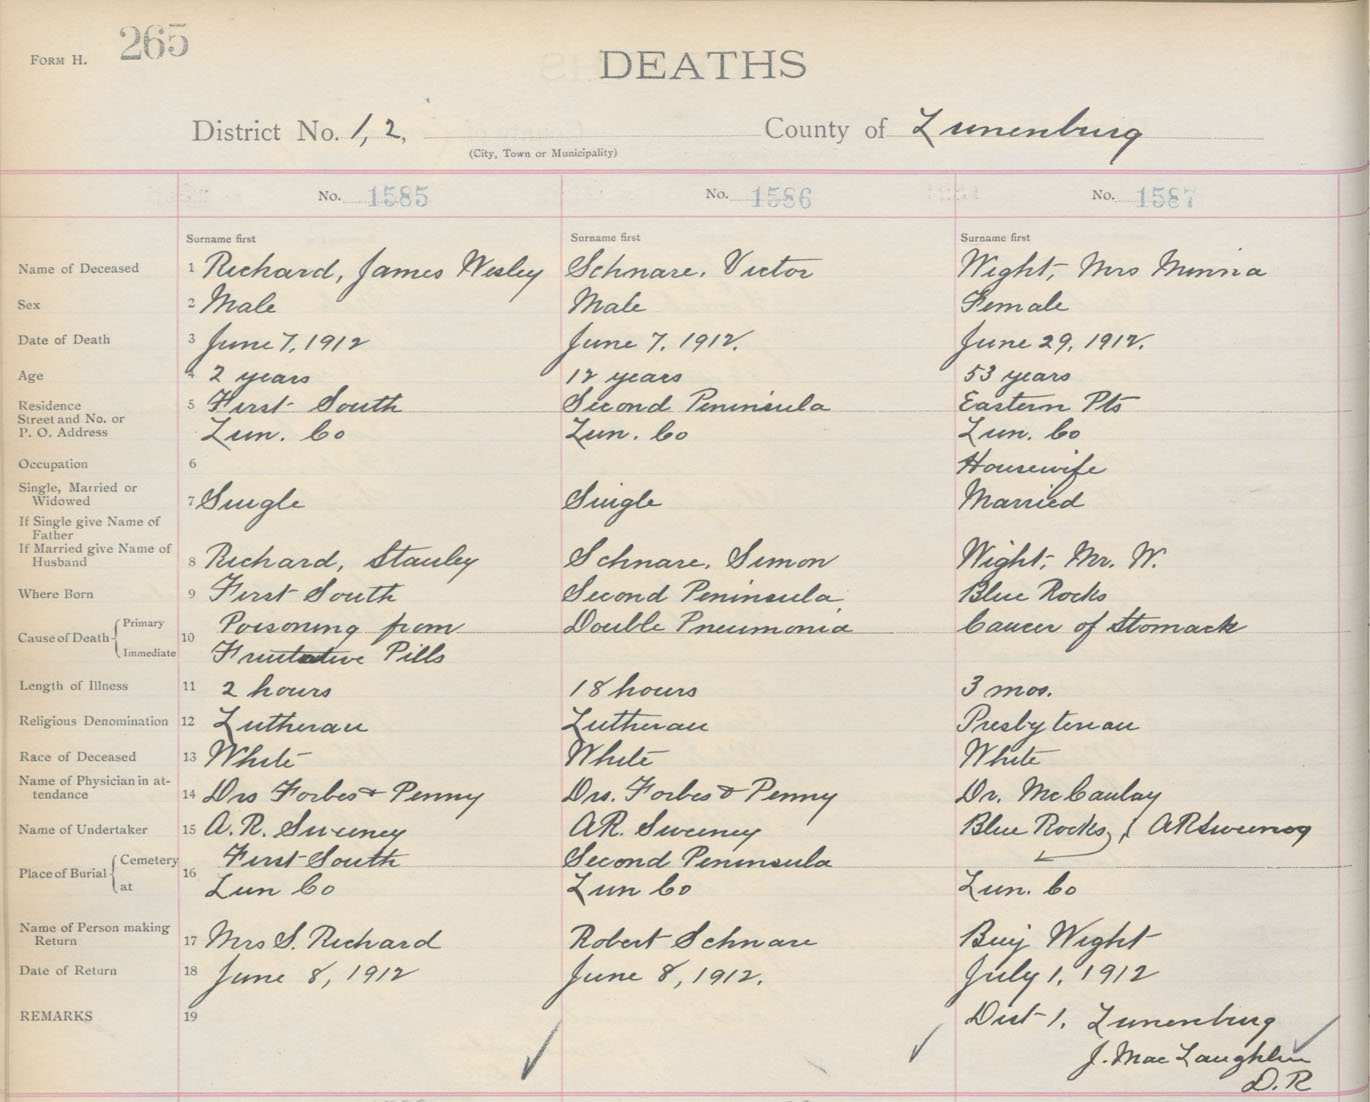 FORM H. 265
DEATHS
District No. 1, 2, County of Lunenburg
(City, Town or Municipality)
No. 1585 No. 1586 No. 1587
Surname first Surname first Surname first
Name of Deceased 1 Richard, James Wesley Schnare, Victor Wight, Mrs Minnia
Sex 2 Male Male Female
Date of Death 3 June 7, 1912 June 7, 1912. June 29, 1912.
Age 4 2 years 12 years 53 years
Residence 5 First South Second Peninsula Eastern Pts
Street and No. or
P. O. Address Lun. Co Lun. Co Lun. Co
Occupation 6 Housewife
Single, Married or
Widowed 7 Single Single Married
If Single give Name of
Father
If Married give Name of
Husband 8 Richard, Stanley Schnare, Simon Wight, Mr. W.
Where Born 9 First South Second Peninsula Blue Rocks
Cause of Death Primary 10 Poisoning from Double Pneumonia Cancer of Stomack
Immediate Fruitative Pills
Length of Illness 11 2 hours 18 hours 3 mos.
Religious Denomination 12 Lutheran Lutheran Presbyterian
Race of Deceased 13 White White White
Name of Physician in at-
tendance 14 Drs Forbes & Penny Drs. Forbes & Penny Dr. McCaulay
Name of Undertaker 15 A. R. Sweeney AR. Sweeney Blue Rocks, AR Sweeney
Place of Burial Cemetery 16 First South Second Peninsula
at Lun Co Lun Co Lun. Co
Name of Person making
Return 17 Mrs S. Richard Robert Schnare Benj Wight
Date of Return 18 June 8, 1912 June 8, 1912. July 1, 1912
REMARKS 19 Dist 1, Lunenburg
J. MacLaughlin
D. R